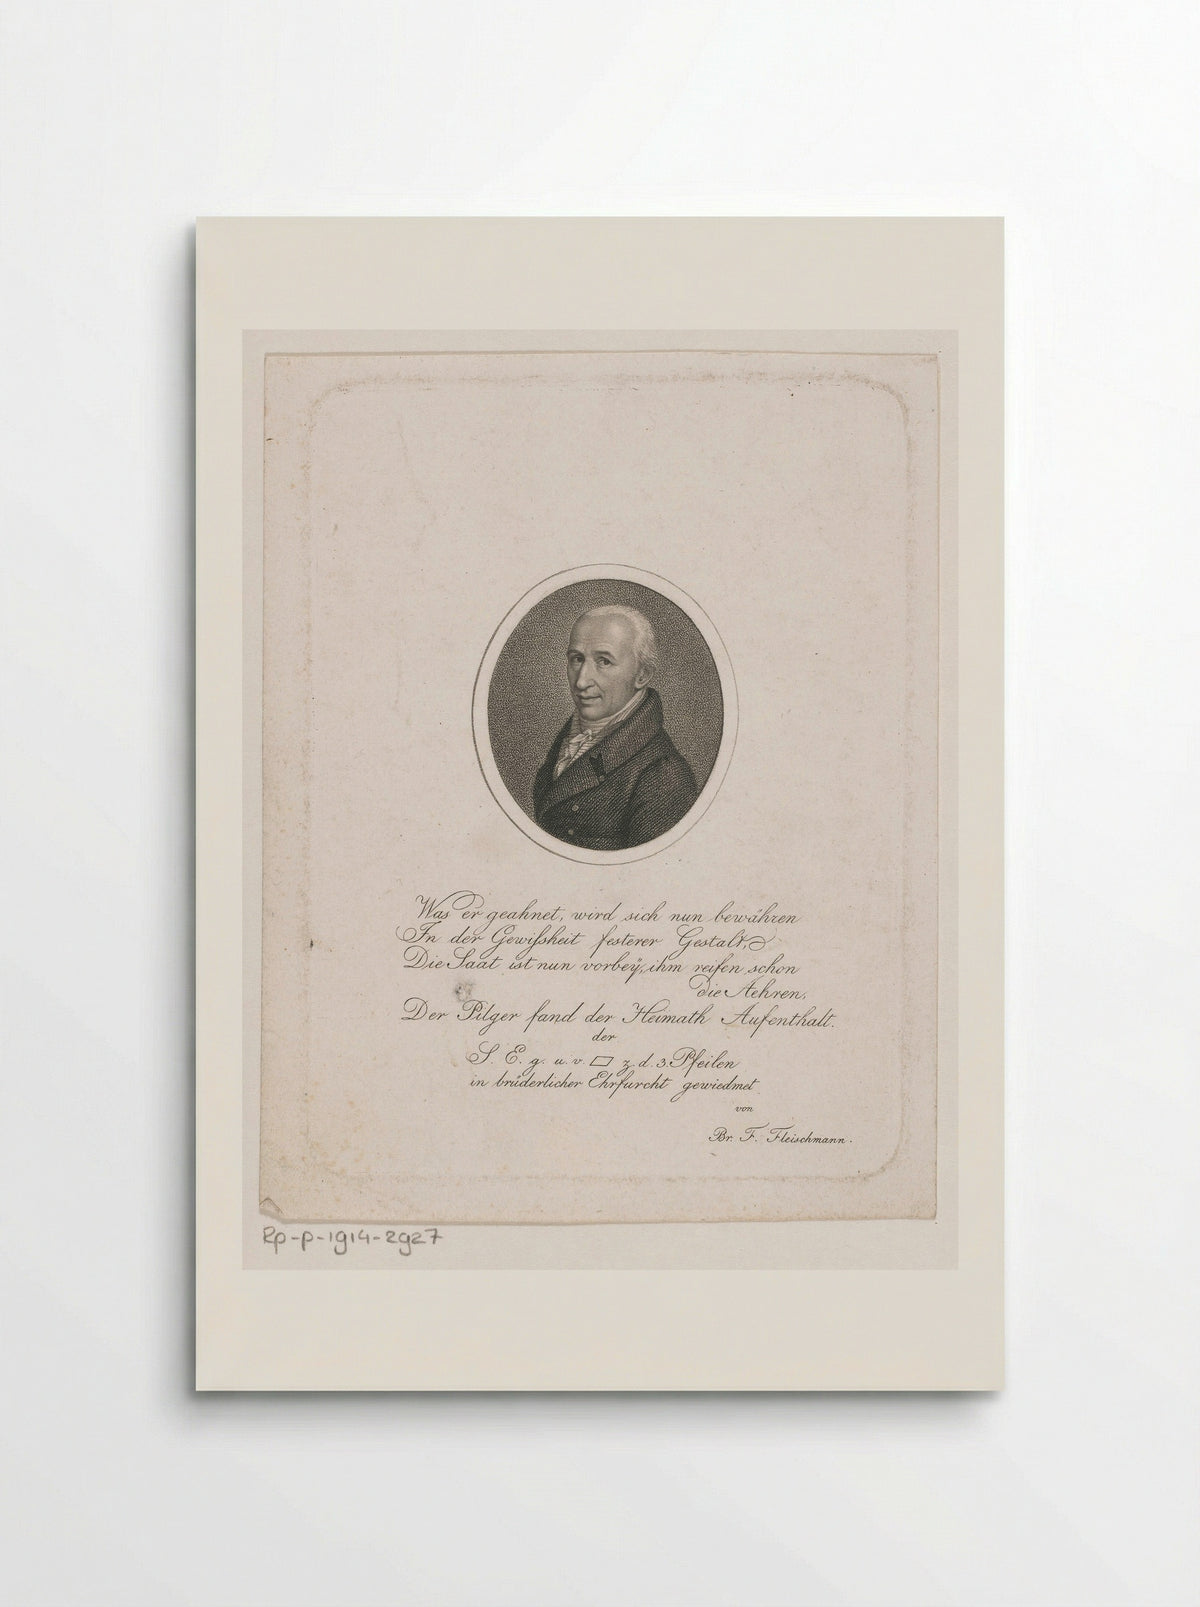 Was er geahnet, wird sich nun bewähren
In der Gewißheit festerer Gestalt,
Die Saat ist nun vorbey, ihm reifen schon
die Aehren,
Der Pilger fand der Heimath Aufenthalt.
der
S. E. g. u. v. ▭ z. d. 3 Pfeilen
in brüderlicher Ehrfurcht gewiedmet
von
Br. F. Fleischmann.
Rp-p-1914-2927